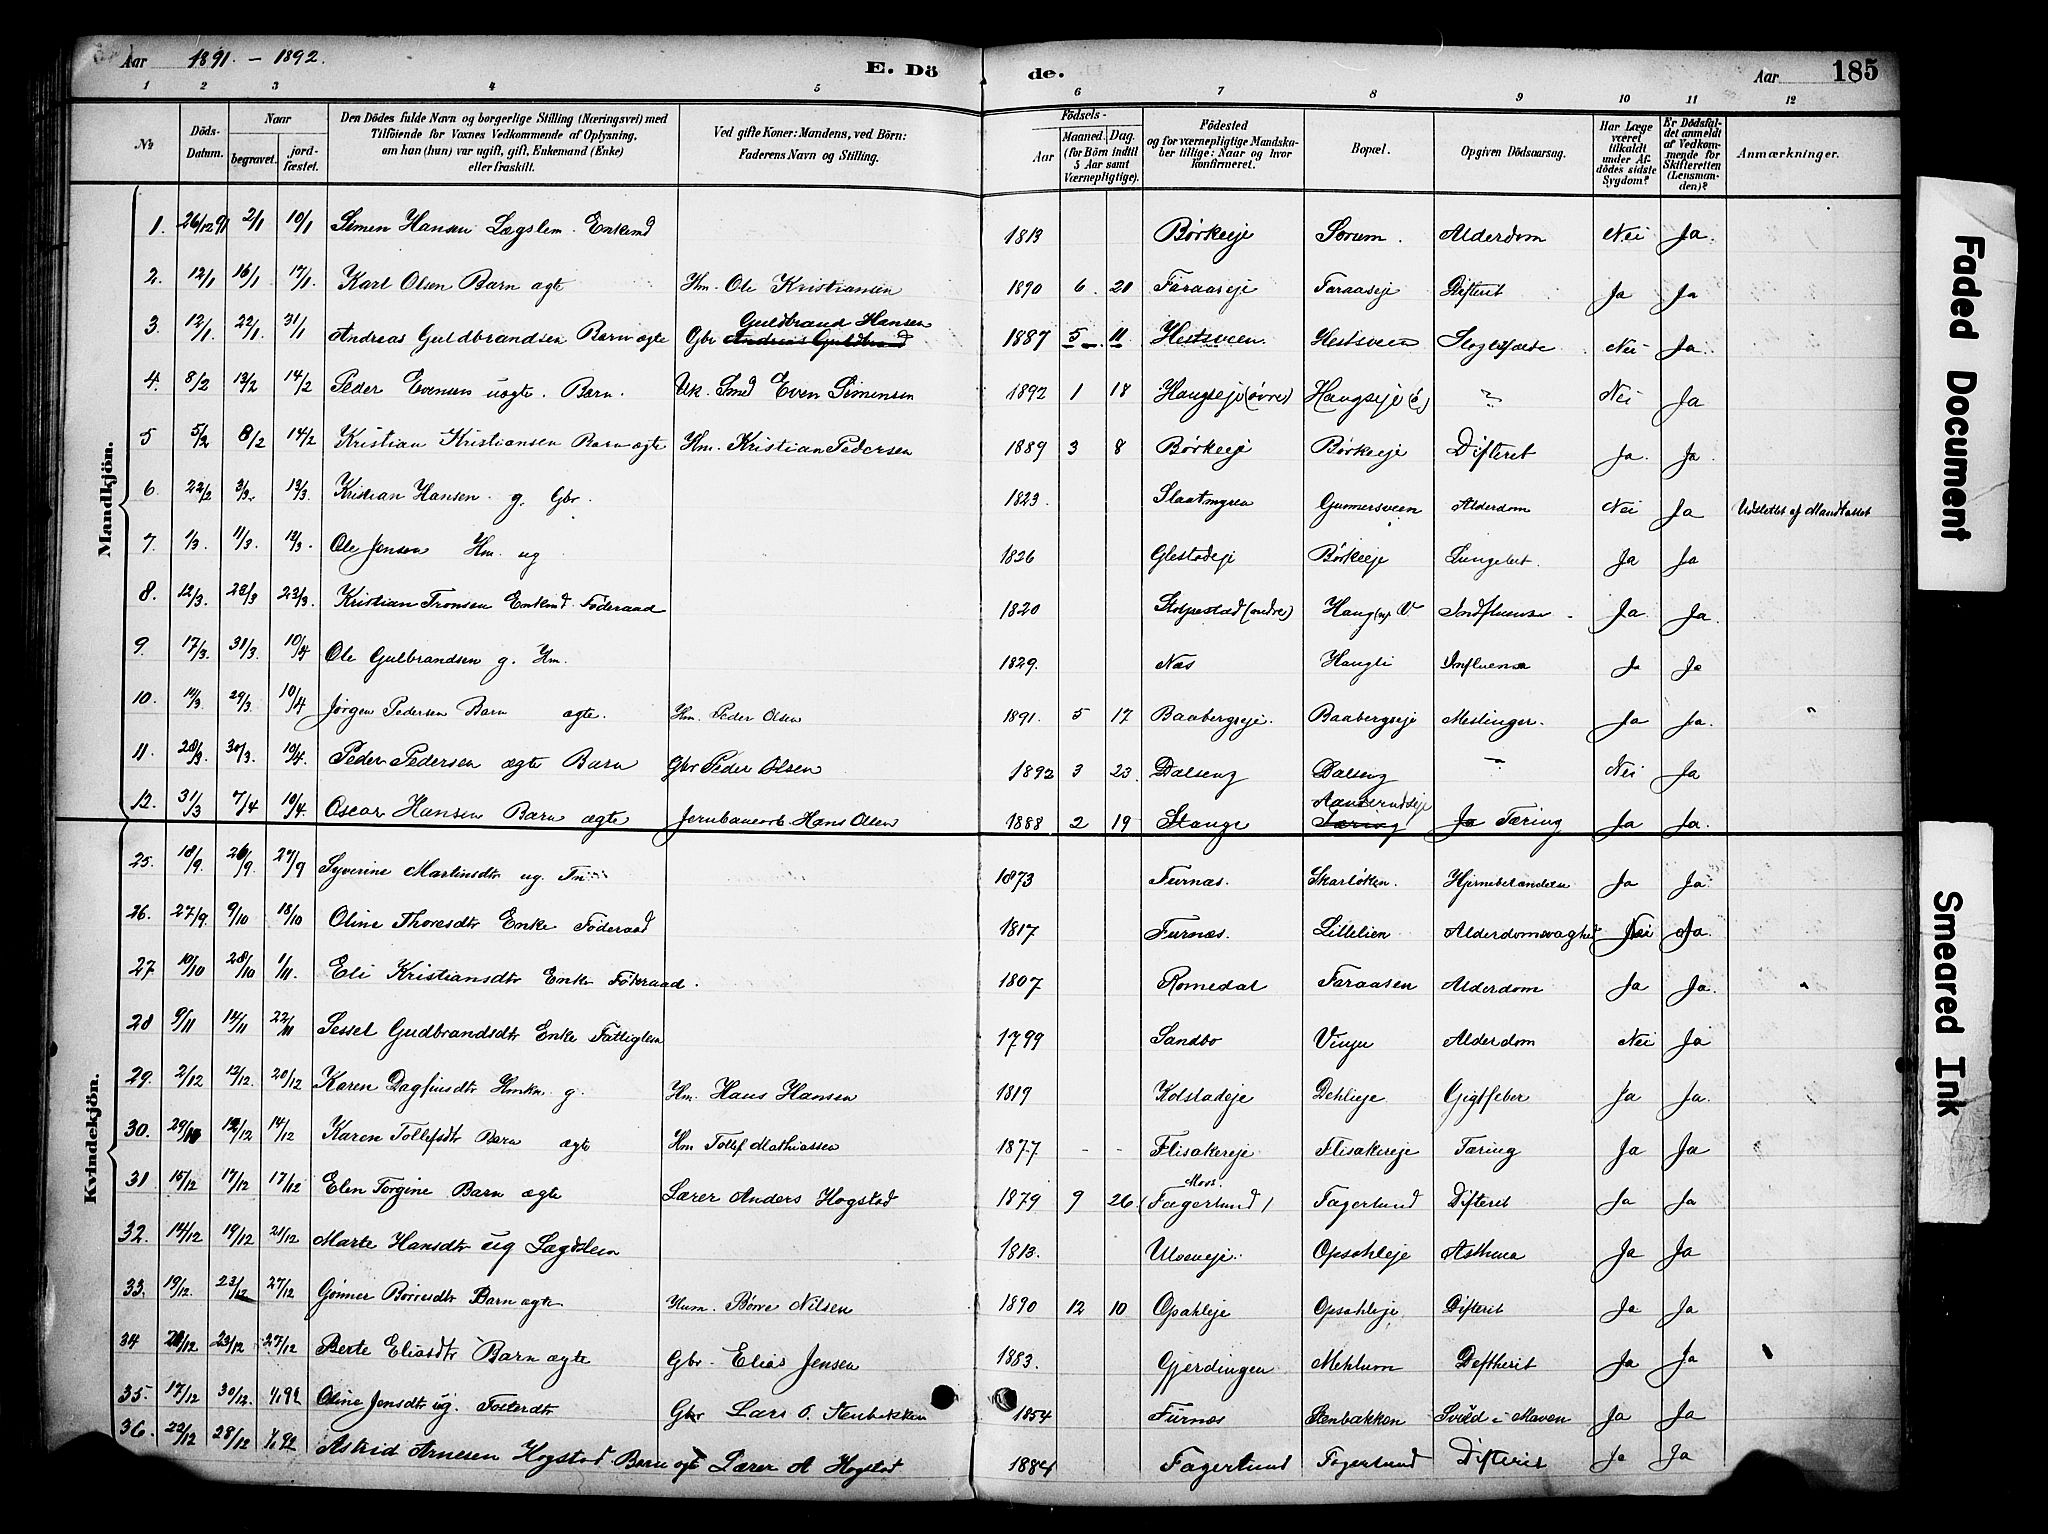 Aar 1891. - 1892. E. Dö de. Aar 185
1 2 3 4 5 6 7 8 9 10 11 12
№ Döds-Datum. Naar begravet. jordfæstet. Den Dödes fulde Navn og borgerlige Stilling (Næringsvei) med Tilföiende for Voxnes Vedkommende af Oplysning, om han (hun) var ugift, gift, Enkemand (Enke) eller fraskilt. Ved gifte Koner: Mandens, ved Börn: Faderens Navn og Stilling. Födsels- Aar Maaned. Dag. (for Börn indtil 5 Aar samt Værnepligtige). Födested og for værnepligtige Mandskaber tillige: Naar og hvor konfirmeret. Bopæl. Opgiven Dödsaarsag. Har Læge været tilkaldt under Afdödes sidste Sygdom? Er Dödsfaldet anmeldt af Vedkommende for Skifteretten (Lensmanden)? Anmærkninger.
Mandkjön.
1. 26/12 91 2/1 10/1 Simen Hansen Lægslem. Enkmd 1813 Børkeeje Sorum. Alderdom Nei Ja.
2. 12/1 16/1 17/1 Karl Olsen Barn ægte Hm. Ole Kristiansen 1890 6. 20 Faraaseje Faraaseje Difterit Ja Ja
3. 12/1 22/1 31/1 Andreas Guldbrandsen Barn ægte Gbr Guldbrand Hansen 1887 5 11 Hestsveen Hestsveen Nei Ja.
4. 8/2 13/2 14/2 Peder Evensen uægte. Barn. Uk. Smed Even Simensen 1892 1 18 Haugseje (øvre) Haugseje (ø) " Nei Ja
5 5/2 8/2 14/2 Kristian Kristiansen Barn ægte Hm. Kristian Pedersen 1889 3 8 Børkeeje Børkeeje Difterit Ja. Ja.
6. 22/2 3/3. 13/3. Kristian Hansen g. Gbr. 1823. Slaatmyren Gunnersveen Alderdom Nei Ja Udslettet af Mandtallet
7. 1/3. 11/3. 12/3. Ole Jensen Hm. ug 1826 Glestadeje Børkeeje Lungebet. Ja Ja
8. 12/3. 22/3 23/3. Kristian Tronsen Enkmd. Føderaad 1820 Stolpestad (nedre) Haug Indfluensa Ja Ja.
9. 17/3. 31/3. 10/4 Ole Gulbrandsen g. Hm. 1829. Næs Haugli Influensa Ja Ja
10. 14/3. 29/3. 10/4 Jørgen Pedersen Barn ægte. Hm. Peder Olsen 1891. 5 17 Baabergseje. Baabergseje Meslinger. Ja Ja.
11. 20/3 30/3. 10/4. Peder Pedersen ægte Barn Gbr Peder Olsen 1892 3 23. Dalseng Dalseng " Nei Ja
12. 31/3 7/4 10/4. Oscar Hansen Barn ægte Jernbanearb. Hans Olsen 1888 2 19 Stange Aanderudseje Tæring Ja Ja.
Kvindekjön.
25. 18/9. 26/9. 27/9 Syverine Martinsdtr ug. 1873 Furnæs. Skarløken. Hjernebetændelse Ja Ja
26. 27/9 9/10 18/10 Oline Thoresdtr Enke Føderaad 1817 Furnæs. Lillelien Alderdomsvaghed Nei Ja.
27 10/10 28/10 1/11. Eli Kristiansdtr Enke Føderaad. 1807 Romedal Faraasen Alderdom Ja Ja.
28 9/11 14/11 22/11 Sessel Gudbrandsdtr Enke Fattiglem 1799 Sandbo Vinju Alderdom Nei Ja
29. 2/12 12/12. 20/12 Karen Dagfinsdtr Hmkn. g. Hm. Hans Hansen 1819 Kolstadeje Dehlieje Gigtfeber Ja Ja.
30. 29/11 12/12 14/12 Karen Tollefsdtr Barn ægte Hm Tollef Mathiassen 1877 - - Flisakereje Flisakereje Tæring Ja Ja
31 15/12 17/12 17/12 Elen Torgine Barn ægte Lærer Anders Hogstad 1879 9 26. (Fagerlund) Fagerlund Difterit Ja Ja
32. 14/12 19/12 21/12 Marte Hansdtr ug Lægdslem 1813. Ulveneje. Opsahleje Asthma Ja Ja
33. 19/12. 23/12 27/12 Gønner Børresdtr Barn ægte Hum. Børre Nilsen 1890 12 10 Opahleje Opsahleje Difterit Ja Ja
34 20/12 23/12 27/12 Berte Eliasdtr Barn ægte Gbr. Elias Jensen 1883. Gjerdingen Mehlum Deftherit Ja Ja
35. 17/12 30/12. 1/1 92 Oline Jensdtr ug. Fosterdtr Gbr Lars O. Stenbakken 1854 Furnæs Stenbakken Sviid i Maven Ja Ja
36. 22/12 28/12 1/1 92 Astrid Arnesen Hogstad Barn ægt Lærer A Hogstad 1884 Fagerlund Fagerlund Difterit Ja Ja
Faded Document
Smeared Ink